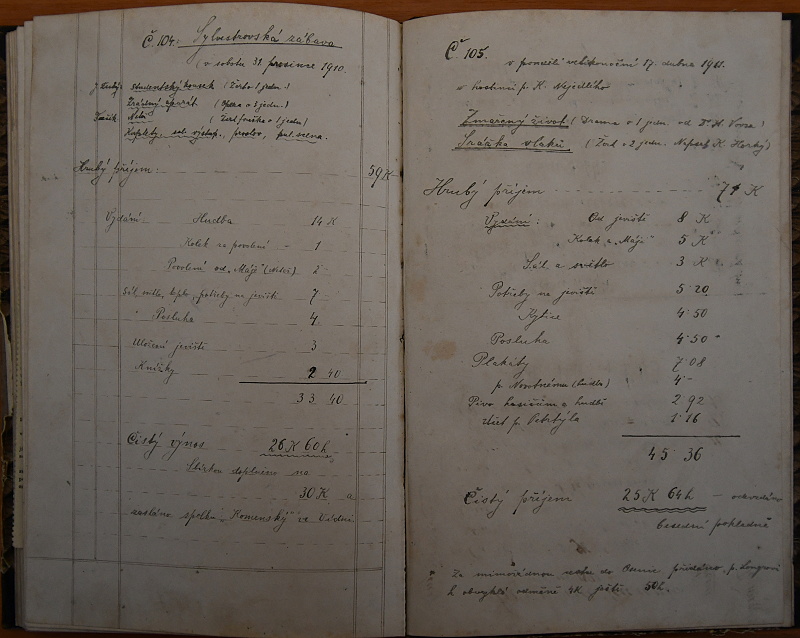 Č. 104. Sylvestrovská zábava
(v sobotu 31. prosince 1910.
studentský kousek (Žert o 1 jedn.)
Zrádný aparát (Opera o 1 jedn.)
(Žert fraška o 1 jedn.)
Kuplety, solo výstup.
Hrubý příjem: 59 K
Vydání Hudba 14 K
Kolek za povolení 1
Povolení od „Máje" 2
Sál, světlo, teplo, potřeby na jeviště 7
" Posluha 4
Uložení jeviště 3
Knížky 2 40
33 40
Čistý výnos 26 K 60 h
Sbírkou doplněno na
30 K a
zasláno spolku „Komenský" ve Vídni.
Č. 105.
v pondělí velikonoční 17. dubna 1911.
v hostinci p. K. Nejedlého
Zmařený život (Drama o 1 jedn. od
Srážka vlaků (Žert o 2 jedn. Napsal K. Horký)
Hrubý příjem 71 K
Vydání: Od jeviště 8 K
Kolek a „Máje" 5 K
Sál a světlo 3 K
Potřeby na jeviště 5 20
Kytice 4 50
Posluha 4 50
Plakáty 7 08
p. Novotnému 4 -
Pivo hasičům a hudbě 2 92
Účet p. 1 16
45 36
Čistý příjem 25 K 64 h – odevzdáno
besední pokladně
Za mimořádnou cestu do přidáno p.
k obvyklé odměně 4K ještě 50h.